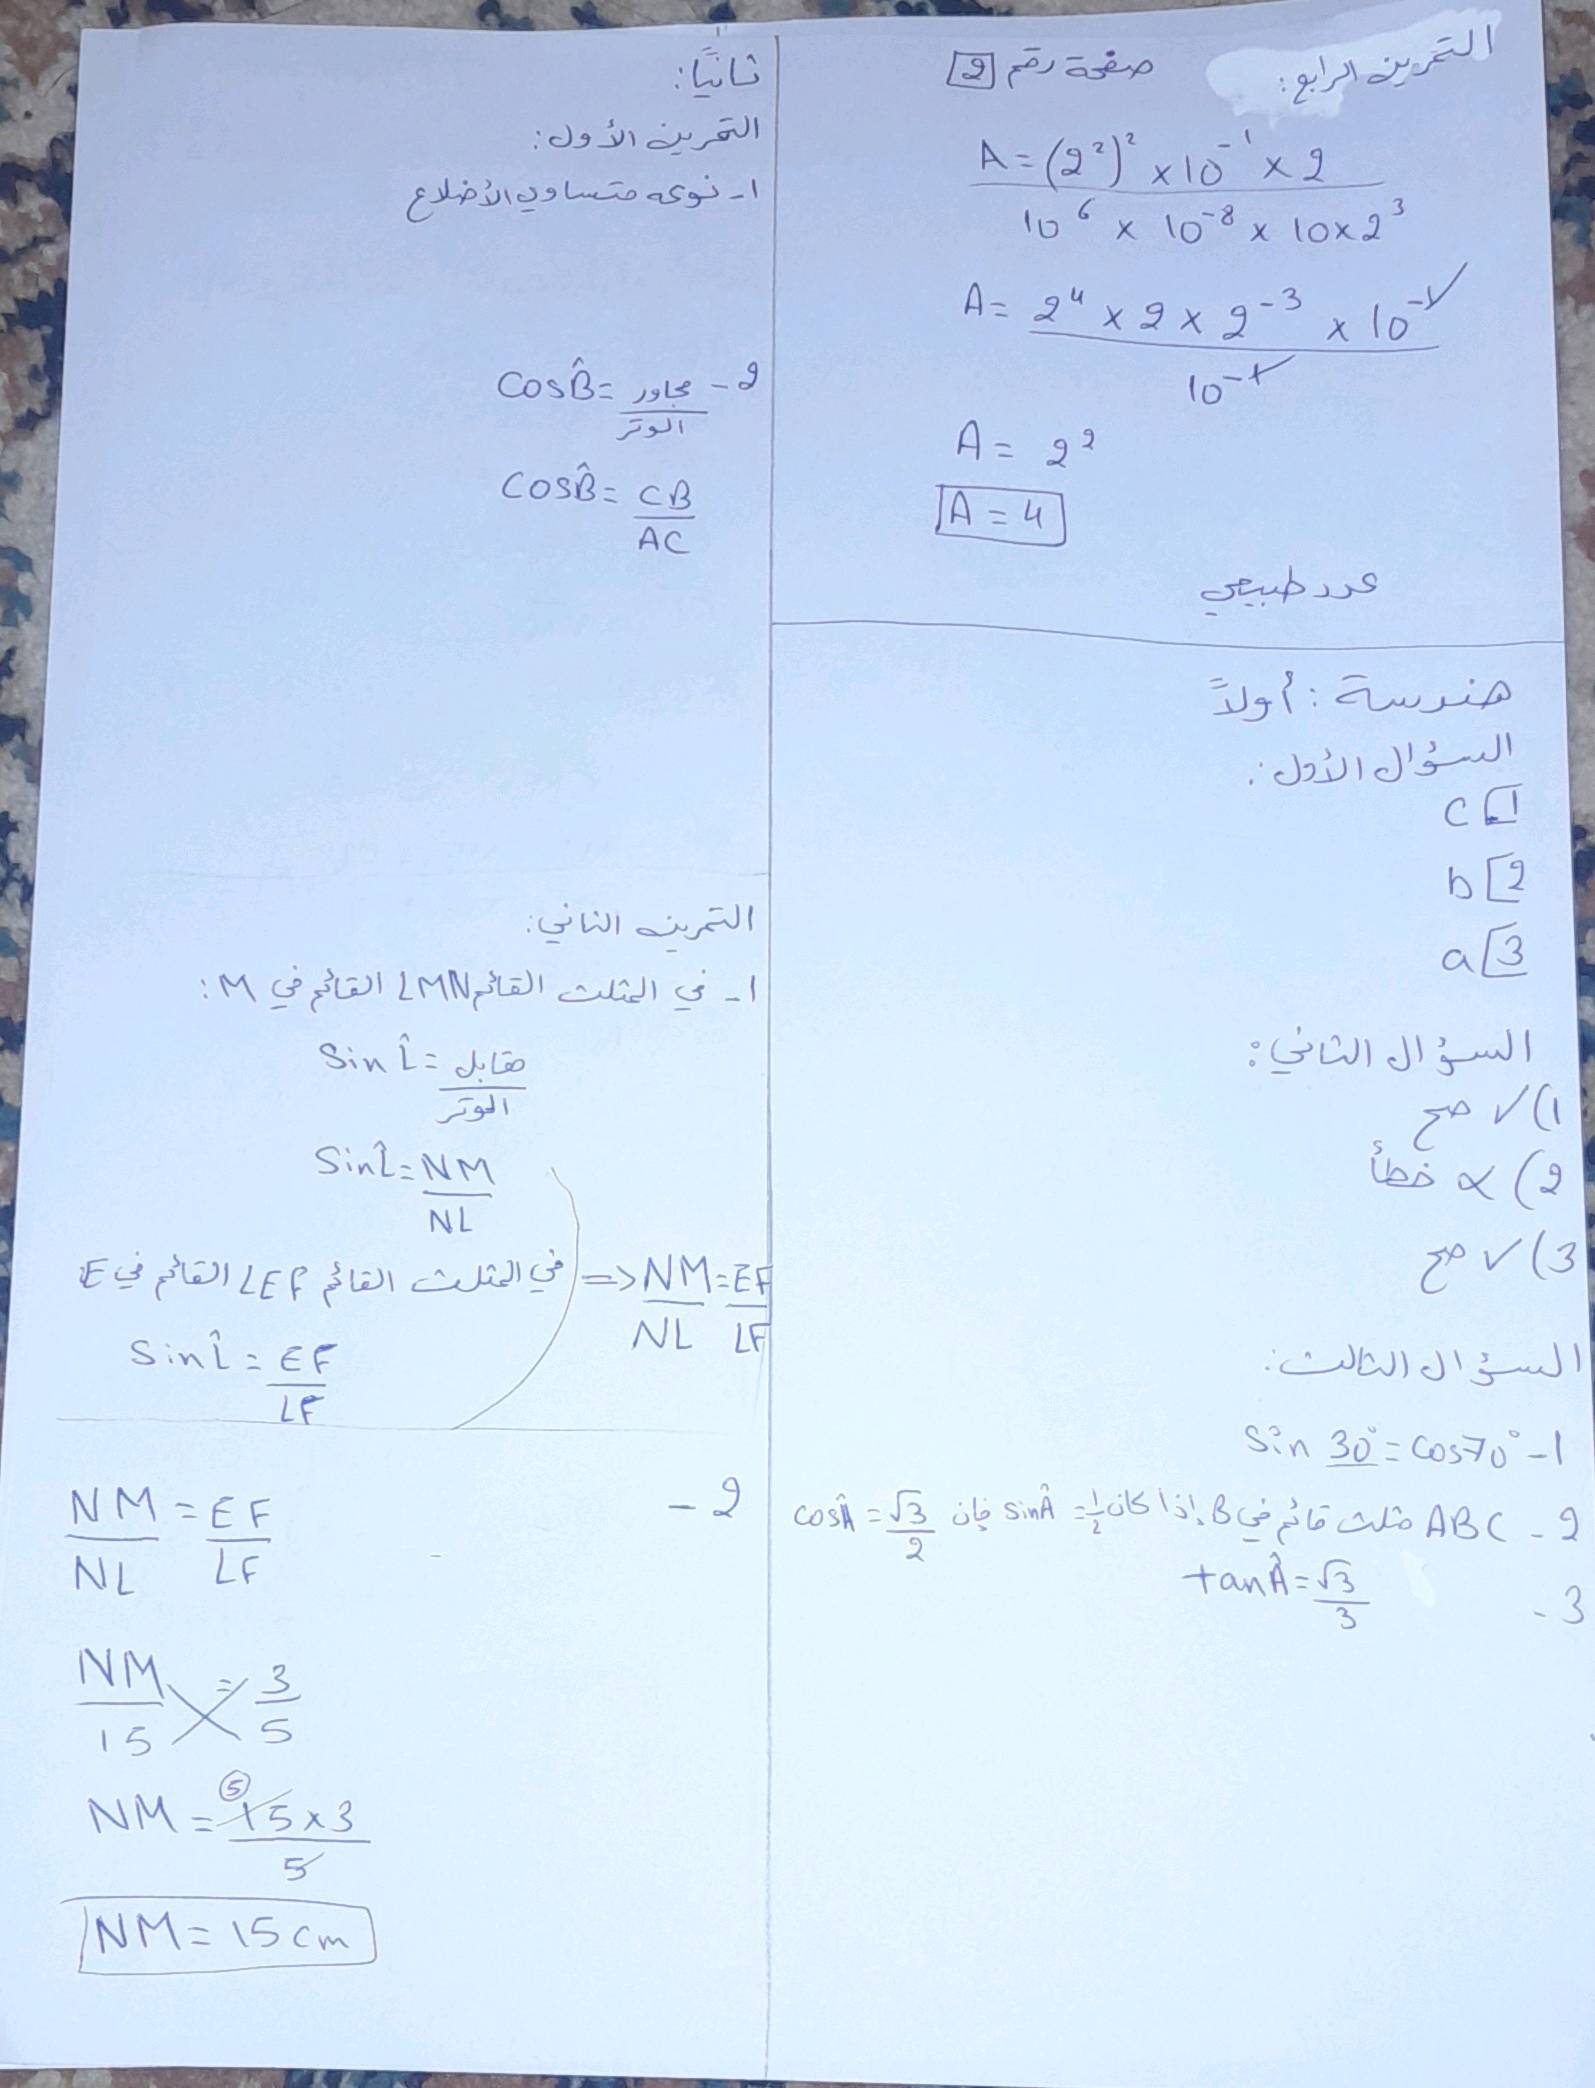 التمرين الرابع: صفحة رقم 2
A = (2²)² × 10⁻¹ × 2
10⁶ × 10⁻⁸ × 10 × 2³
A = 2⁴ × 2 × 2⁻³ × 10⁻¹
10⁻¹
A = 2²
A = 4
عدد طبيعي
هندسة: أولاً
السؤال الأول:
1 c
2 b
3 a
السؤال الثاني:
1) ✓ صح
2) × خطأ
3) ✓ صح
السؤال الثالث:
1- Sin 30° = Cos70°
2- ABC مثلث قائم في B إذا كان sinÂ = 1/2 فإن cosÂ = √3/2
3- tanÂ = √3/3
ثانيًا:
التمرين الأول:
1- نوعه متساوي الأضلاع
2- CosB̂ = مجاور
الوتر
CosB̂ = CB
AC
التمرين الثاني:
1- في المثلث القائم LMN القائم في M:
Sin L̂ = مقابل
الوتر
SinL̂ = NM
NL
في المثلث القائم LEF القائم في E
=> NM = EF
NL LF
Sin L̂ = EF
LF
2-
NM = EF
NL LF
NM = 3
15 5
NM = 15 × 3 ⑤
5
NM = 15 cm